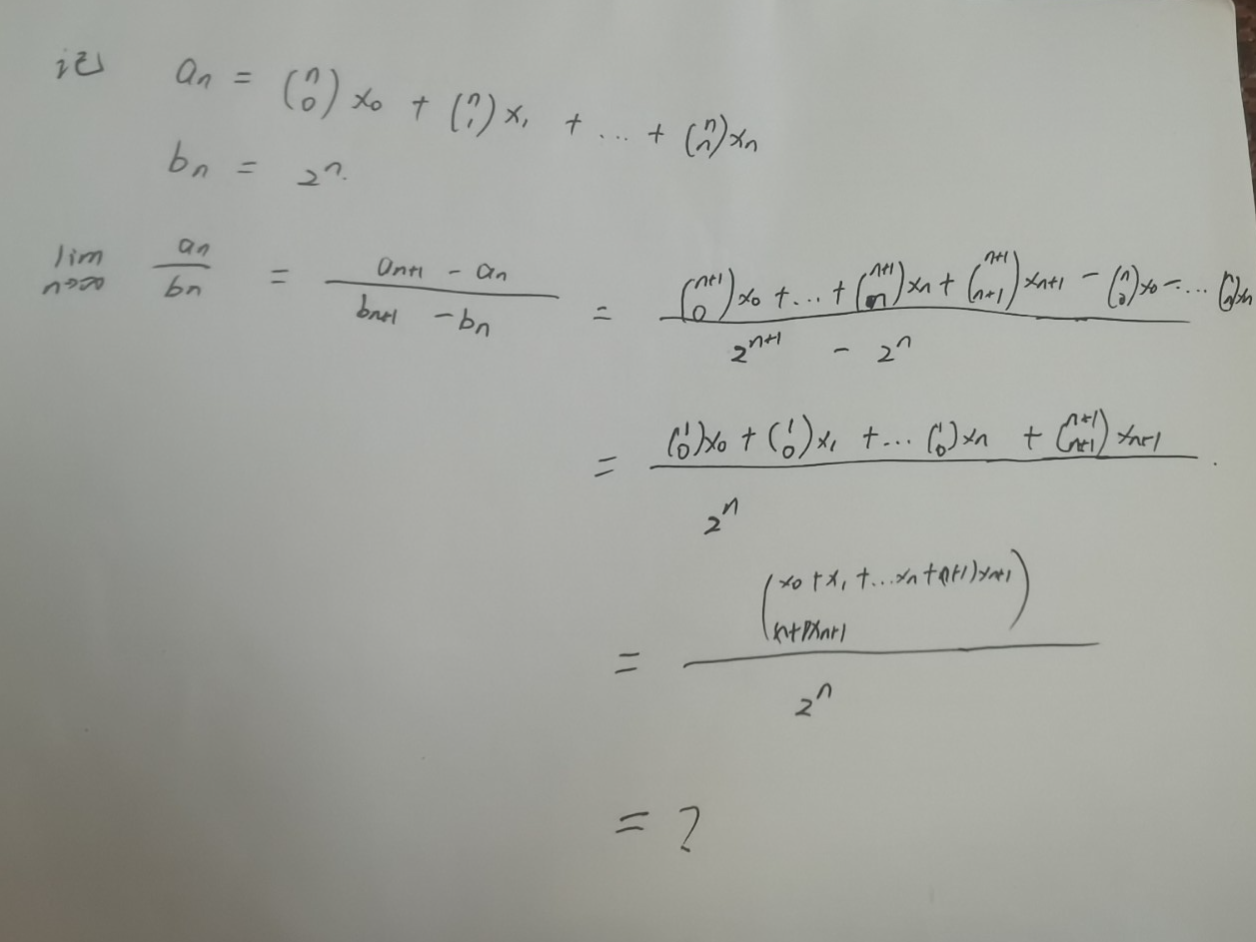 记 aₙ = (n 0) x₀ + (n 1) x₁ + ... + (n n) xₙ
bₙ = 2ⁿ.
lim n→∞ aₙ/bₙ = (aₙ₊₁ - aₙ)/(bₙ₊₁ - bₙ) = ((n+1 0) x₀ + ... + (n+1 n) xₙ + (n+1 n+1) xₙ₊₁ - (n 0) x₀ - ... (n n) xₙ)/(2ⁿ⁺¹ - 2ⁿ)
= ((1 0) x₀ + (1 0) x₁ + ... (1 0) xₙ + (n+1 n+1) xₙ₊₁)/2ⁿ.
= (x₀ + x₁ + ... xₙ + (n+1) xₙ₊₁
n+1)xₙ₊₁)/2ⁿ
= ?